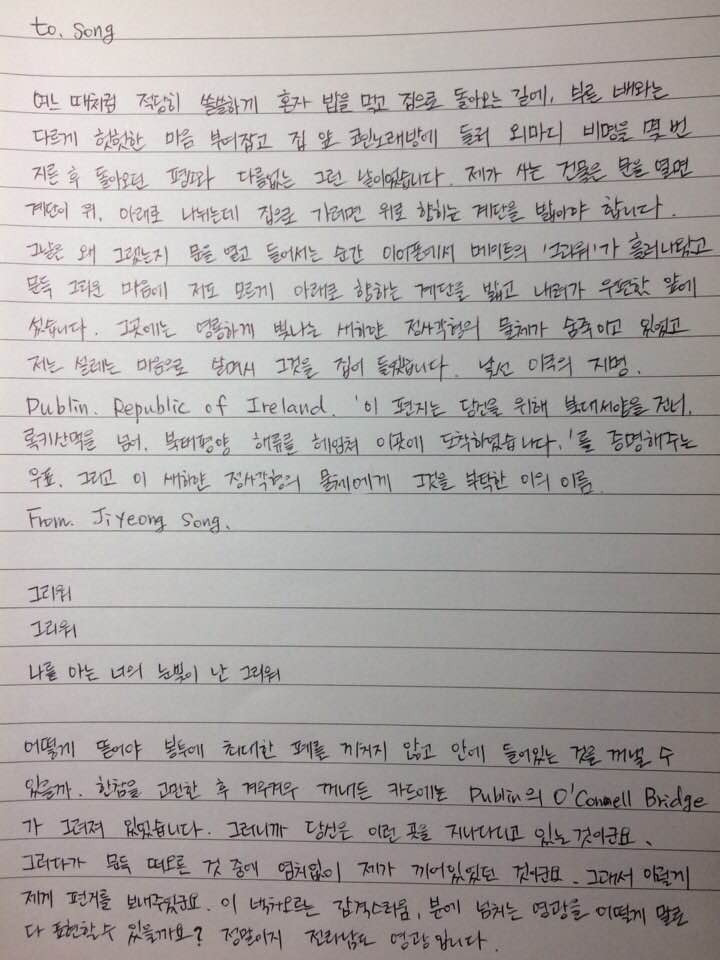 to. Song
여느 때처럼 적당히 쓸쓸하게 혼자 밥을 먹고 집으로 돌아오는 길에, 부른 배와는
다르게 헛헛한 마음 부여잡고 집 앞 코인노래방에 들러 외마디 비명을 몇 번
지른 후 돌아오던 평소와 다름없는 그런 날이었습니다. 제가 사는 건물은 문을 열면
계단이 위, 아래로 나뉘는데 집으로 가려면 위로 향하는 계단을 밟아야 합니다.
그날은 왜 그랬는지 문을 열고 들어서는 순간 이어폰에서 메이트의 '그리워'가 흘러나왔고
문득 그리운 마음에 저도 모르게 아래로 향하는 계단을 밟고 내려가 우편함 앞에
섰습니다. 그곳에는 영롱하게 빛나는 새하얀 정사각형의 물체가 숨죽이고 있었고
저는 설레는 마음으로 살며시 그것을 집어 들었습니다. 낯선 이국의 지명.
Dublin. Republic of Ireland. '이 편지는 당신을 위해 북대서양을 건너,
록키산맥을 넘어, 북태평양 해류를 헤엄쳐 이곳에 도착하였습니다.'를 증명해주는
우표. 그리고 이 새하얀 정사각형의 물체에게 그것을 부탁한 이의 이름.
From. Jiyeong Song.
그리워
그리워
나를 아는 너의 눈빛이 난 그리워
어떻게 뜯어야 봉투에 최대한 폐를 끼치지 않고 안에 들어있는 것을 꺼낼 수
있을까. 한참을 고민한 후 겨우겨우 꺼내든 카드에는 Dublin의 O'Connell Bridge
가 그려져 있었습니다. 그러니까 당신은 이런 곳을 지나다니고 있는 것이군요.
그러다가 문득 떠오른 것 중에 염치없이 제가 끼어있었던 것이군요. 그래서 이렇게
제게 편지를 보내주셨군요. 이 벅차오르는 감격스러움, 분에 넘치는 영광을 어떻게 말로
다 표현할 수 있을까요? 정말이지 전라남도 영광입니다.